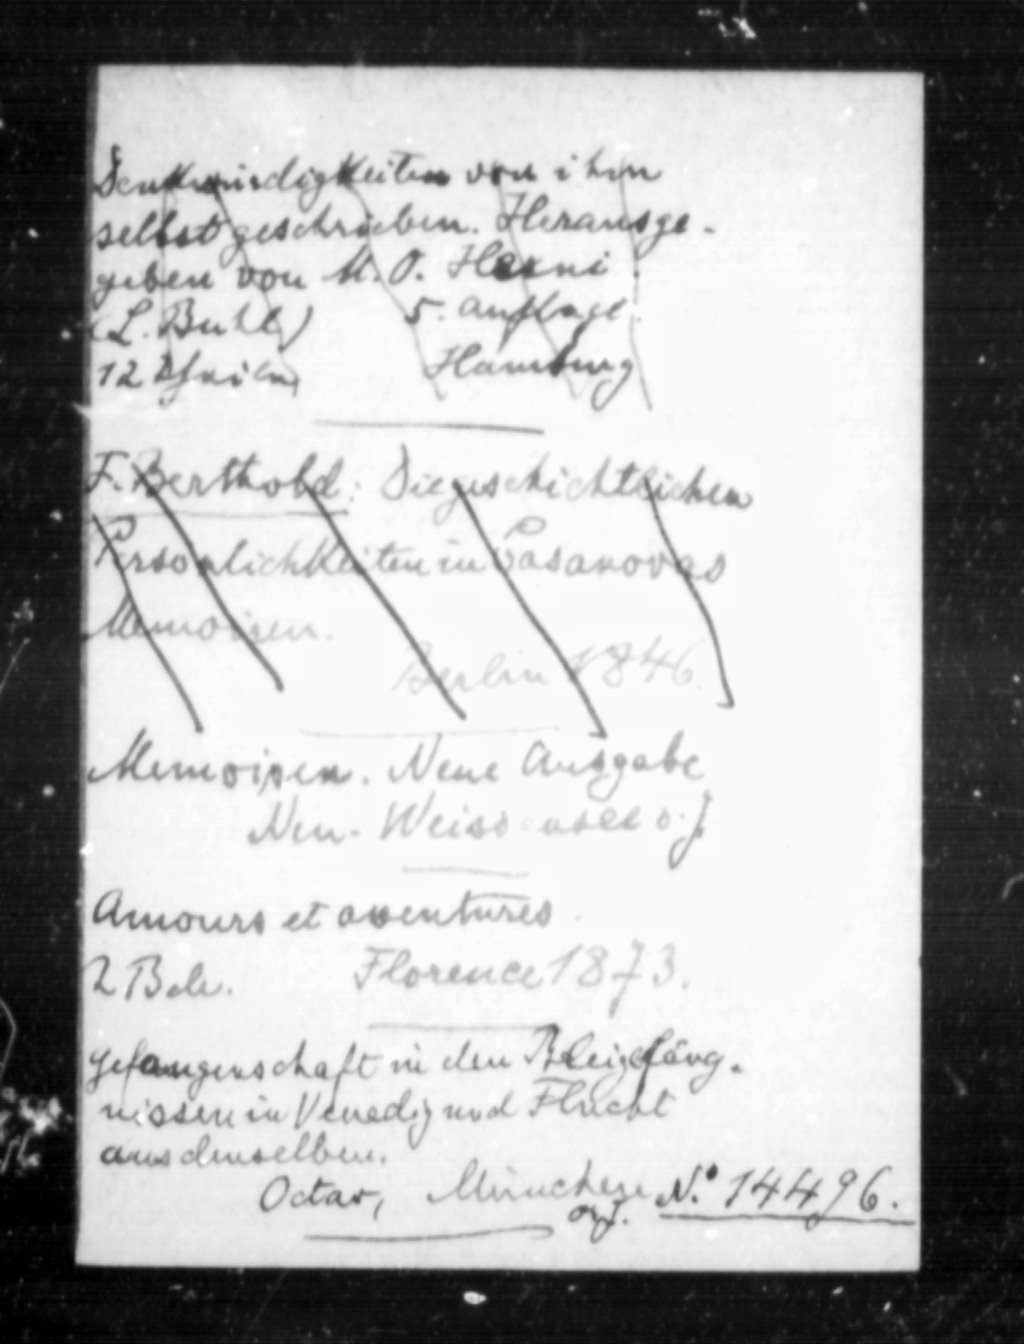 Denkwürdigkeiten von ihm
selbst geschrieben. Herausge-
geben von M. O. Herni.
(L. Buhl) 5. Auflage.
12 Hamburg
F. Berthold: Die geschichtlichen
Persönlichkeiten in Casanovas
Memoiren.
Berlin 1846.
Memoiren. Neue Ausgabe
Neu-Weissensee o. J.
Amours et aventures
2 Bde. Florence 1873.
Gefangenschaft in den Bleigefäng-
nissen in Venedig und Flucht
aus denselben.
Octav, München N.º 14496.
o. J.